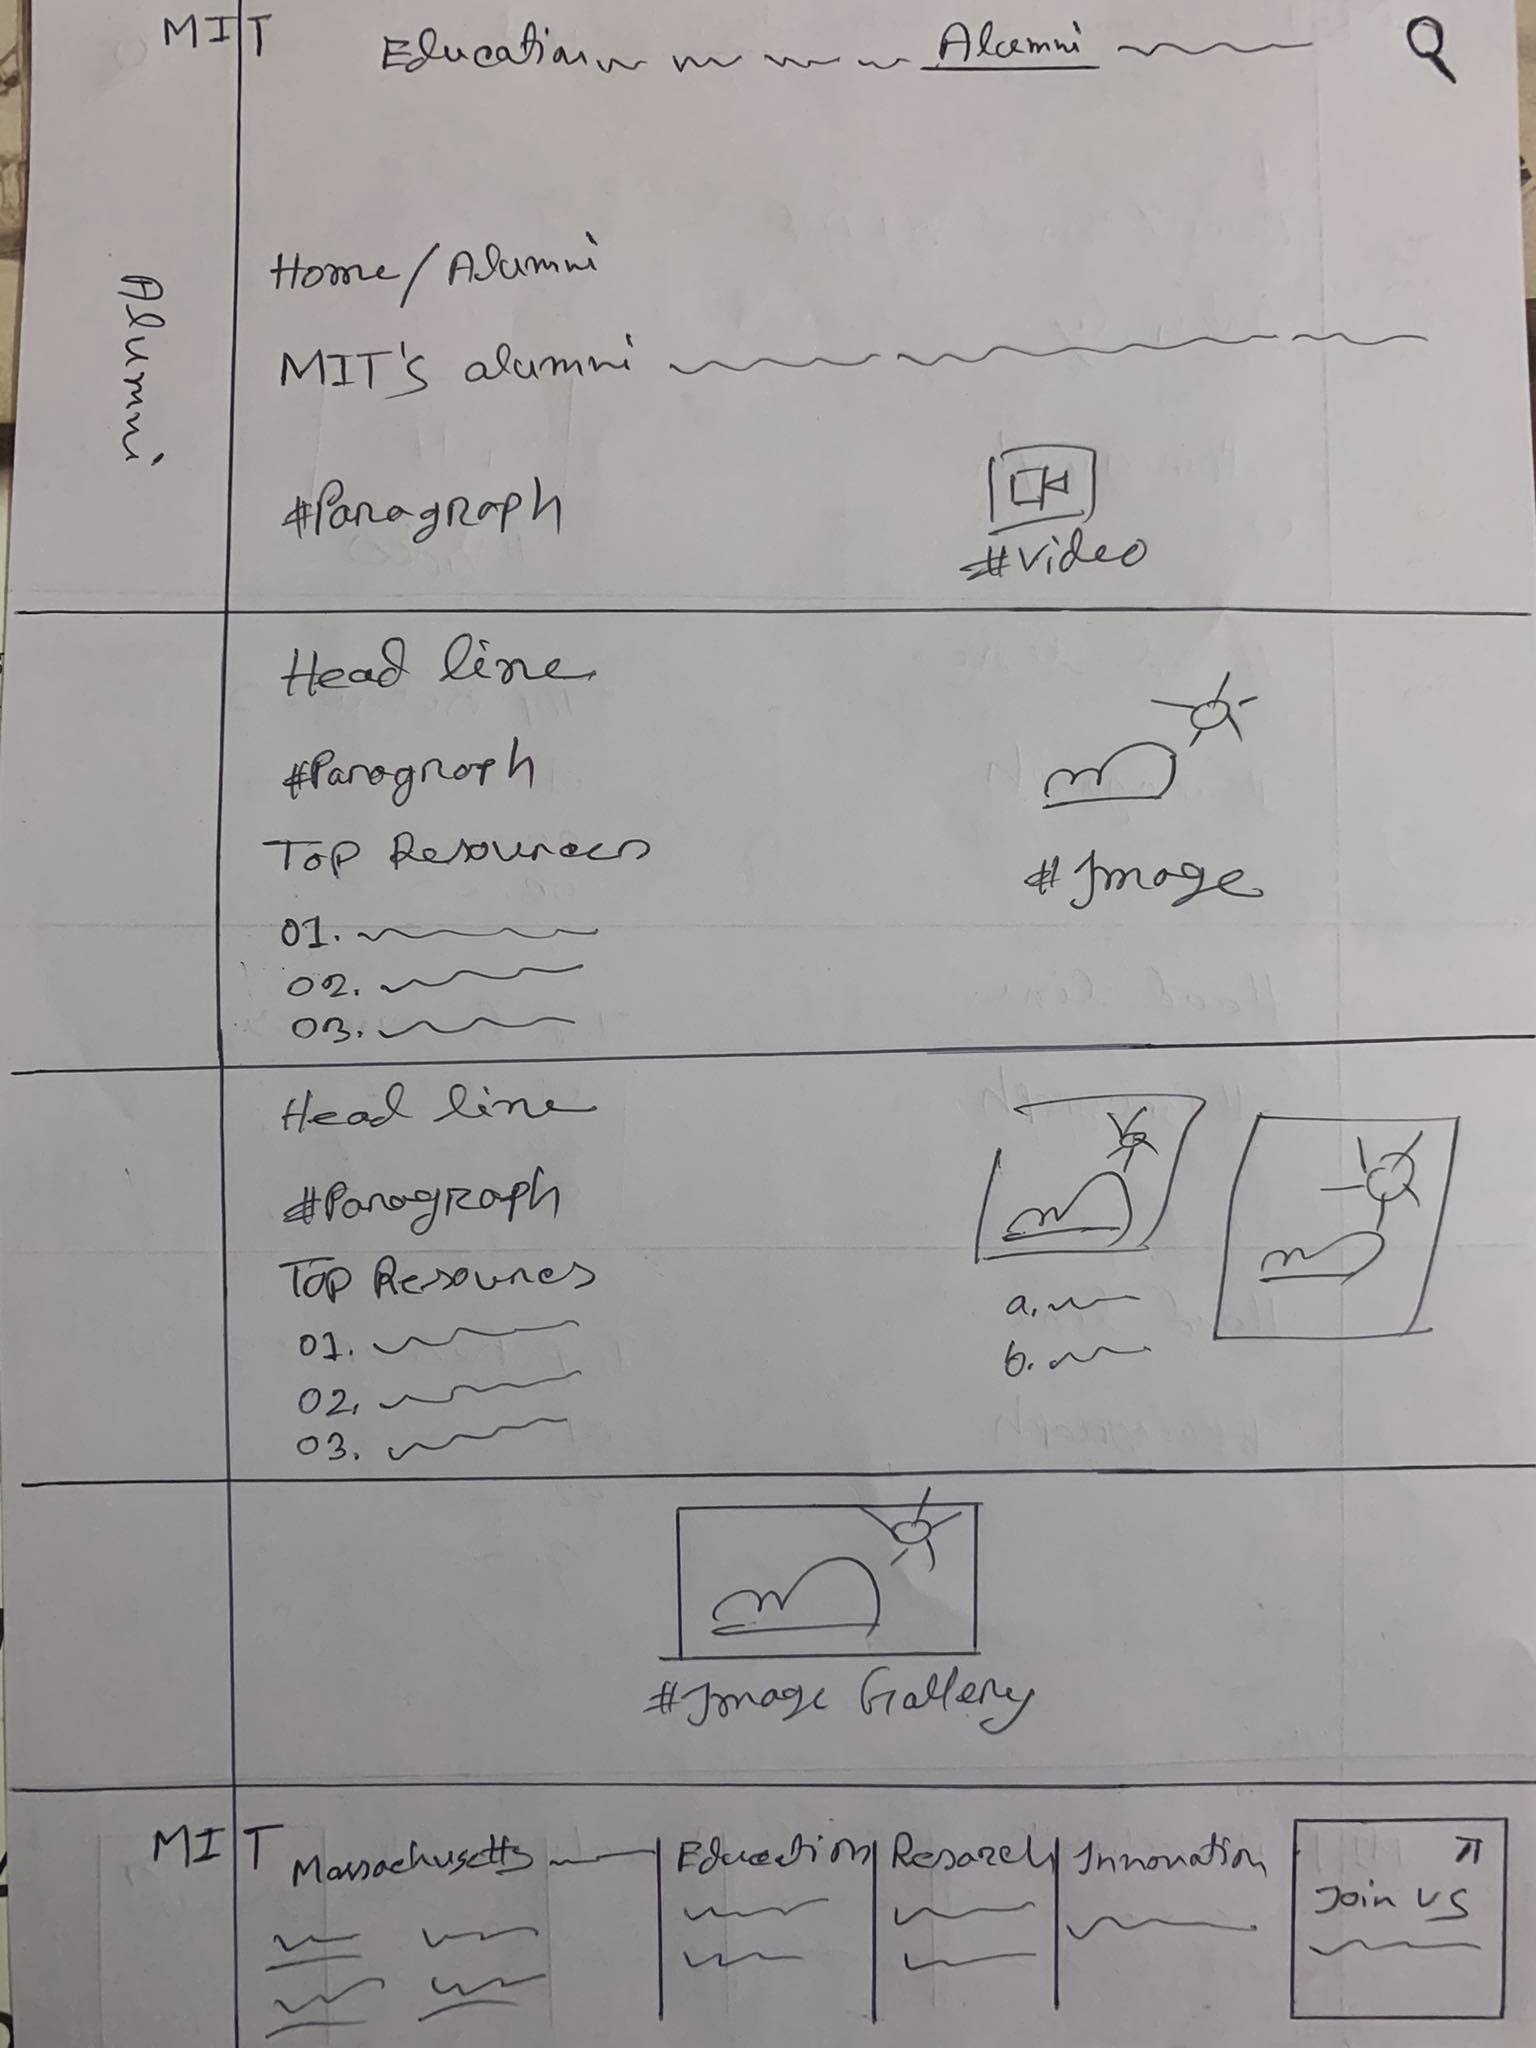 MIT Education Alumni
Alumni
Home/Alumni
MIT's alumni
#Paragraph
#Video
Head line
#Paragraph
Top Resources
01.
02.
03.
#Image
Head line
#Paragraph
Top Resources
01.
02.
03.
a.
b.
#Image Gallery
MIT Massachusetts Education Research Innovation
Join US